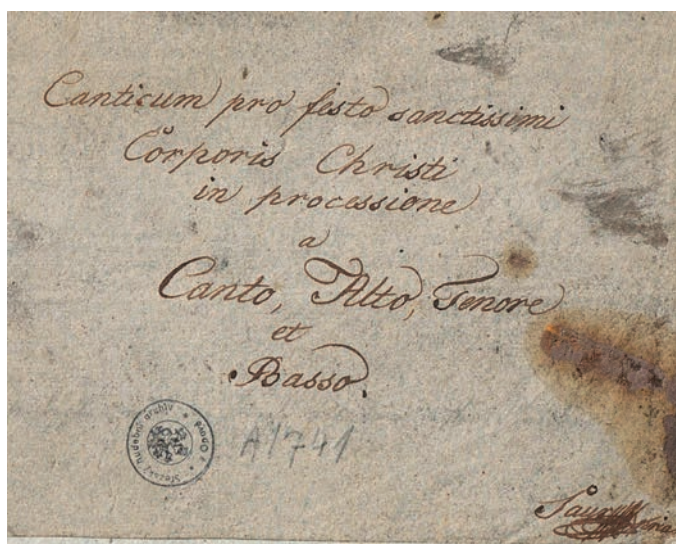 Canticum pro festo sanctissimi
Corporis Christi
in processione
a
Canto, Alto, Tenore
et
Basso.
Slezský hudební archiv * Opava *
A1741